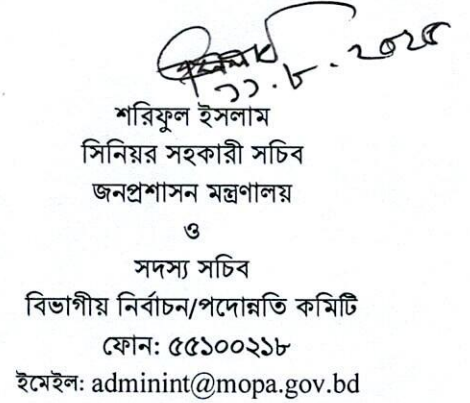 ১১.৮.২০২৫
শরিফুল ইসলাম
সিনিয়র সহকারী সচিব
জনপ্রশাসন মন্ত্রণালয়
ও
সদস্য সচিব
বিভাগীয় নির্বাচন/পদোন্নতি কমিটি
ফোন: ৫৫১০০২১৮
ইমেইল: adminint@mopa.gov.bd